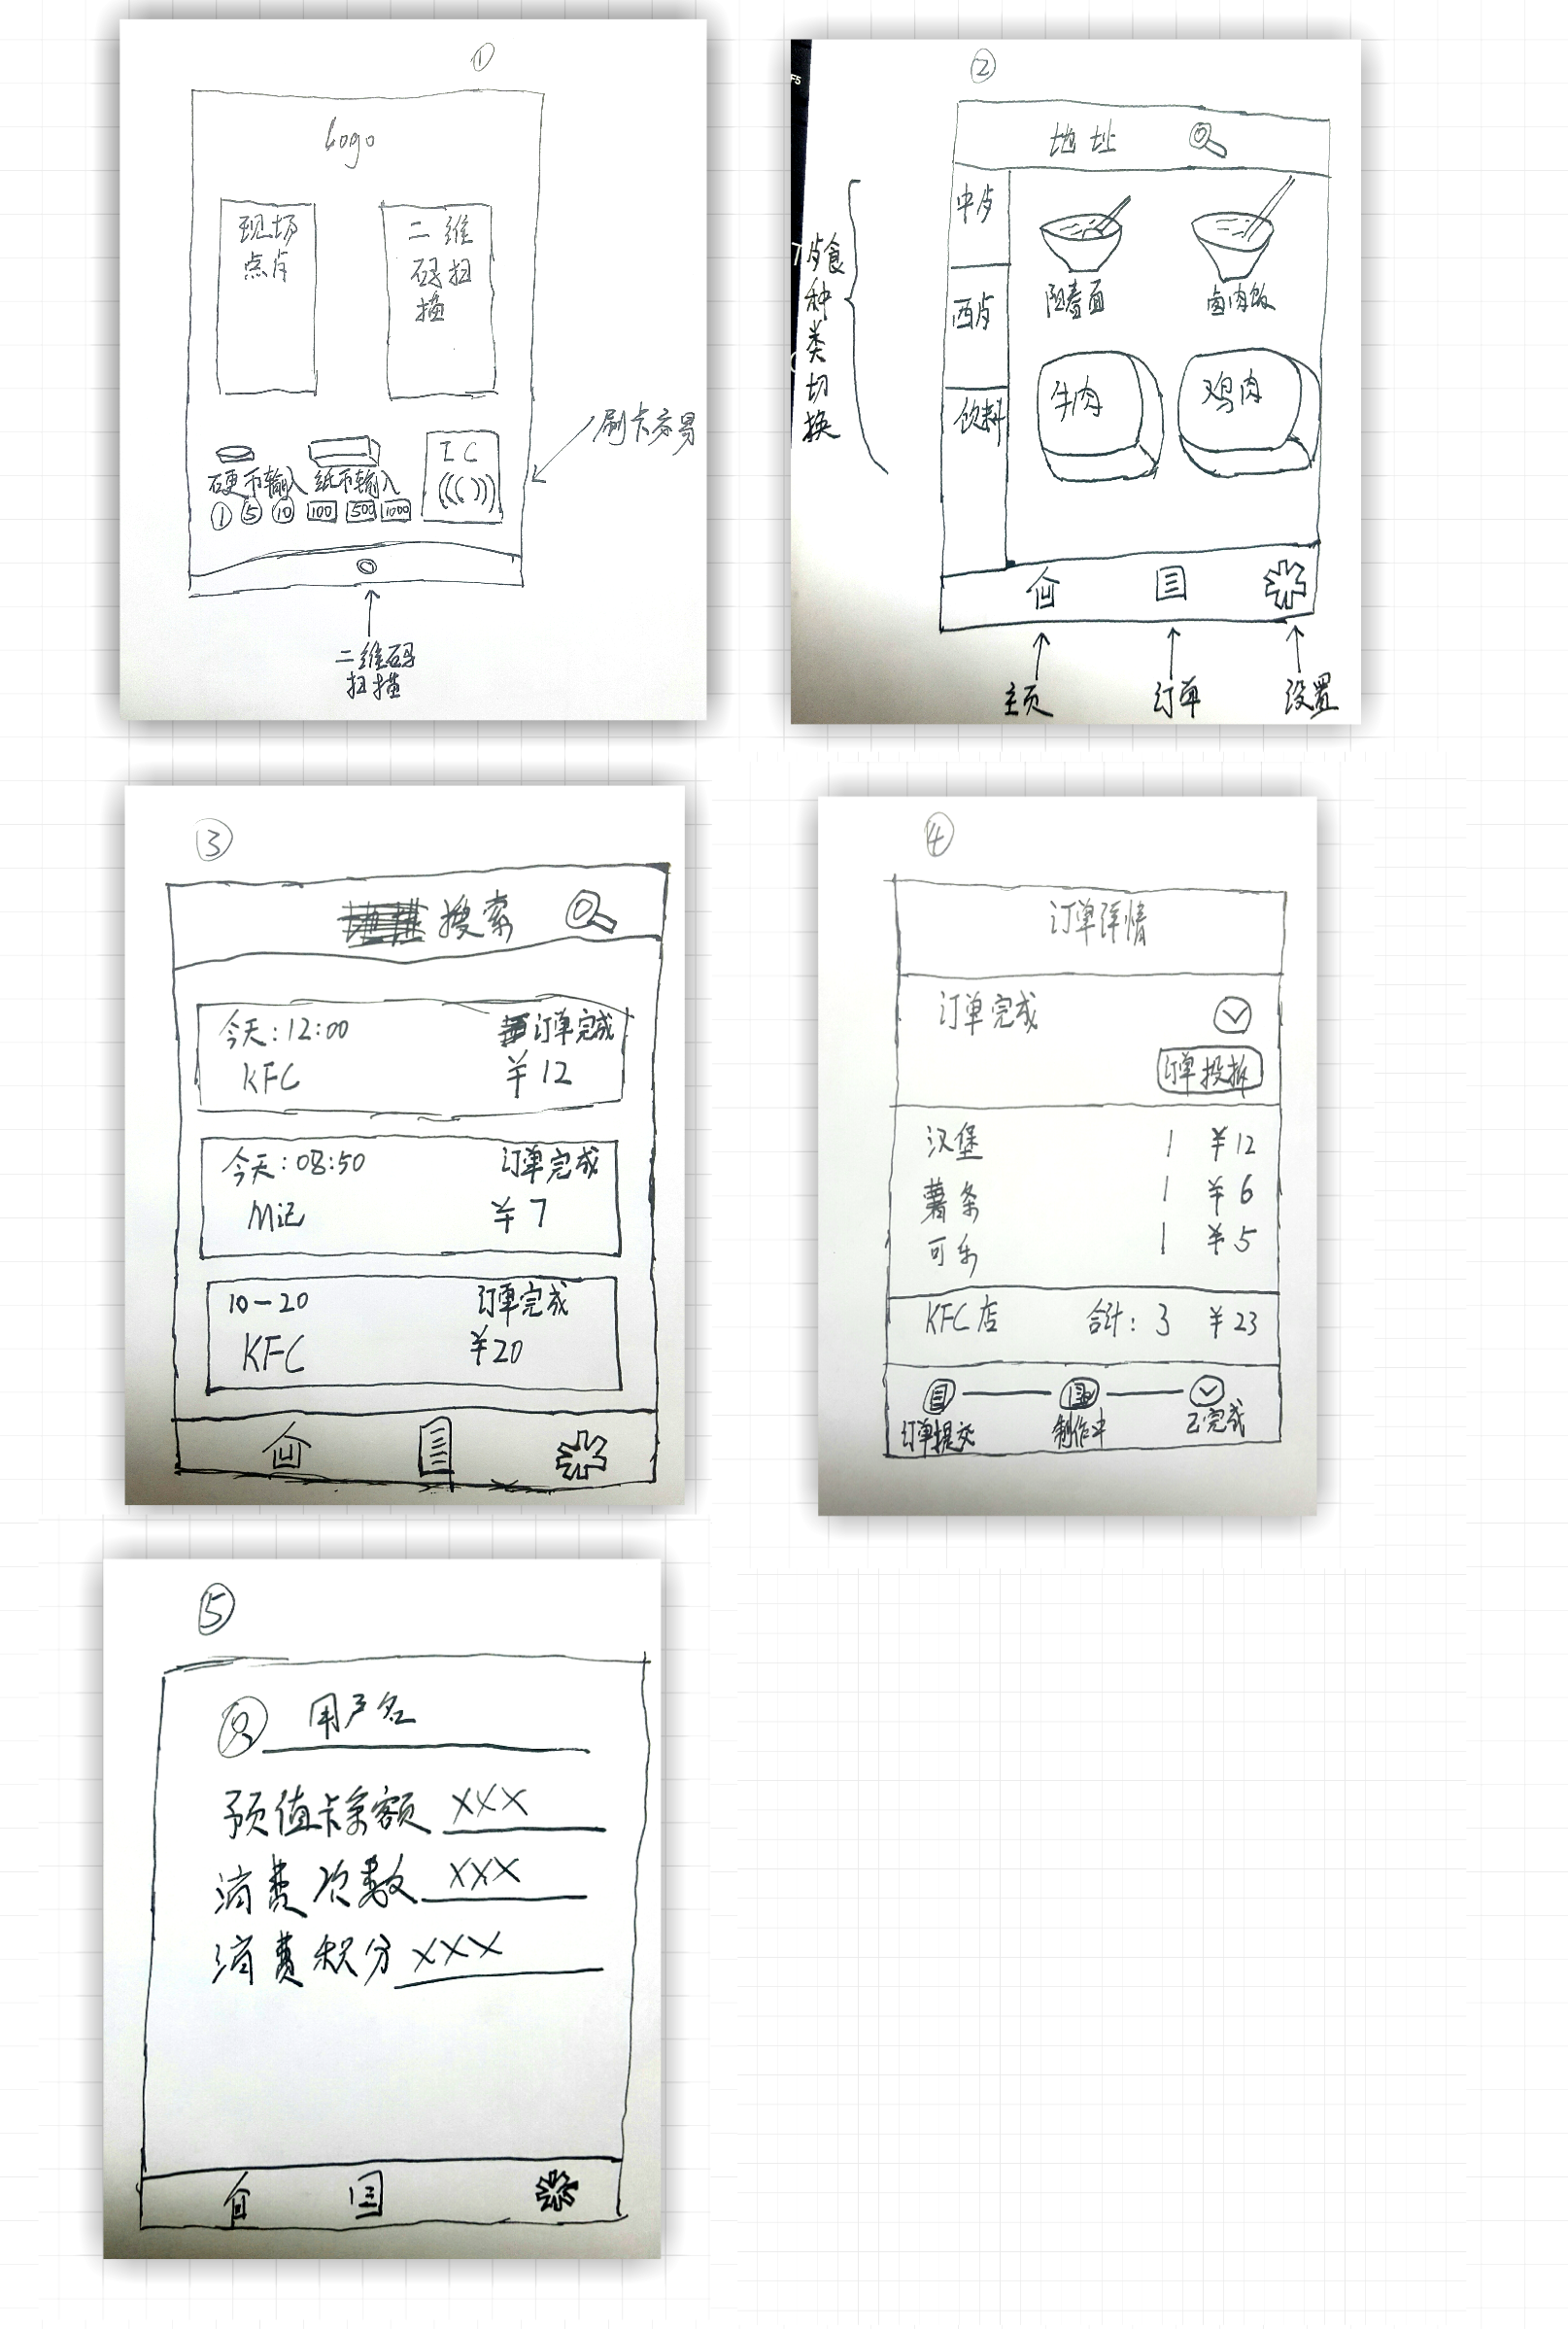 ①
Logo
现场
点歺
二维
码扫
描
刷卡交易
IC
硬币输入 纸币输入
1 5 10 100 500 1000
二维码
扫描
②
F5
地址
中歺
西歺
饮料
歺食种类切换
卤肉饭
牛肉 鸡肉
主页 订单 设置
③
搜索
今天:12:00 订单完成
KFC ¥12
今天:08:50 订单完成
M记 ¥7
10-20 订单完成
KFC ¥20
④
订单详情
订单完成
订单投拆
汉堡 1 ¥12
薯条 1 ¥6
可乐 1 ¥5
KFC店 合计: 3 ¥23
订单提交 制作中 已完成
⑤
用户名
预值卡余额 XXX
消费次数 XXX
消费积分 XXX